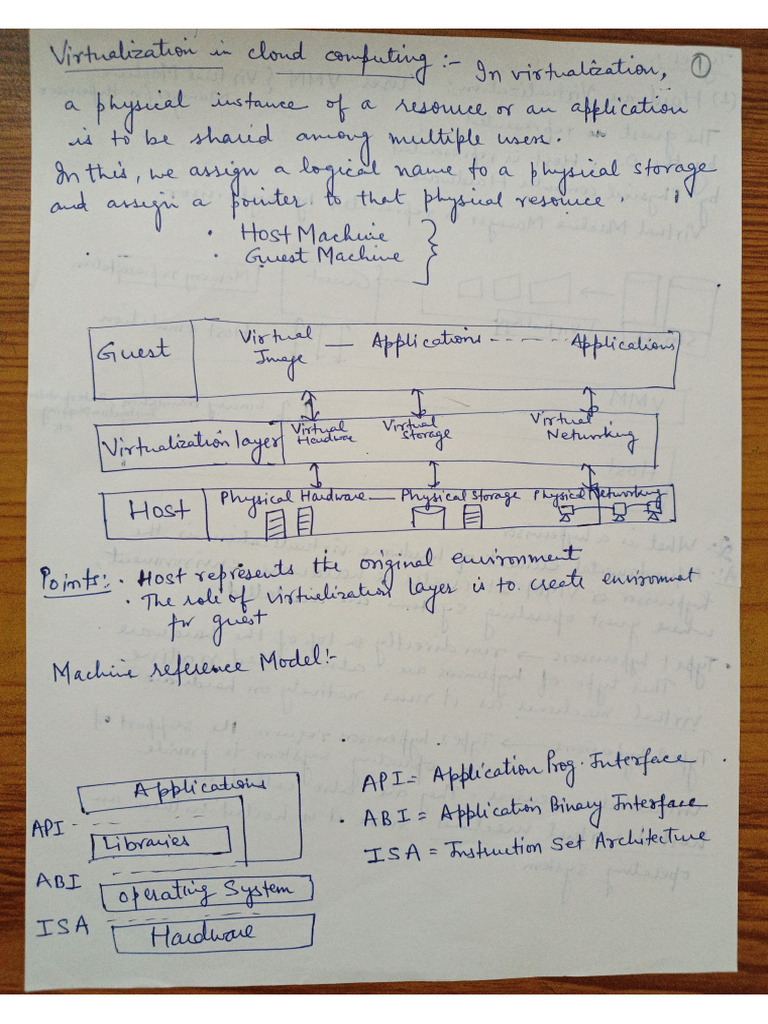 Virtualization in cloud computing :- In virtualization, ①
a physical instance of a resource or an application
is to be shared among multiple users.
In this, we assign a logical name to a physical storage
and assign a pointer to that physical resource.
• Host Machine
• Guest Machine
Guest Virtual Image — Applications - - - - - Applications
Virtualization layer Virtual Hardware Virtual Storage Virtual Networking
Host Physical Hardware — Physical Storage Physical Networking
Points:- • Host represents the original environment
• The role of virtualization layer is to create environment
for guest
Machine reference Model:-
Applications
API
Libraries
ABI
Operating System
ISA
Hardware
API = Application Prog. Interface
• ABI = Application Binary Interface
ISA = Instruction Set Architecture